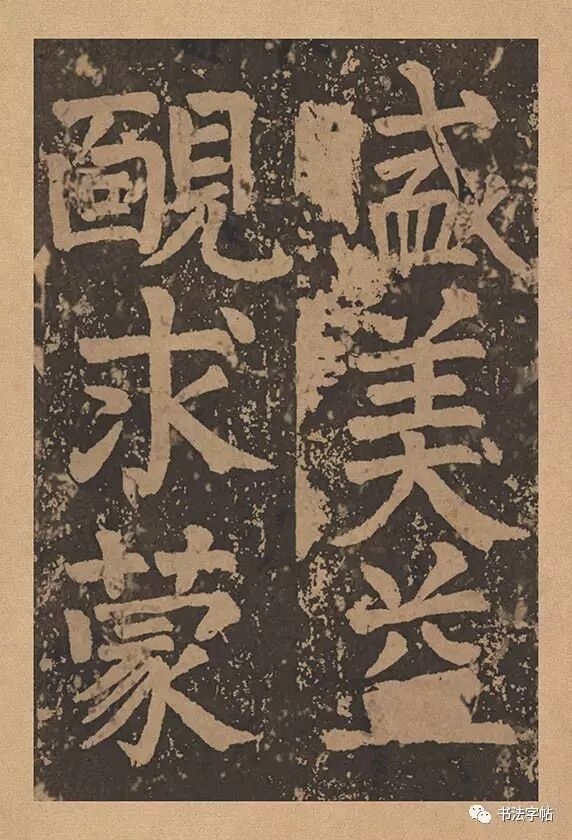 盛美益
靦求蒙
书法字帖